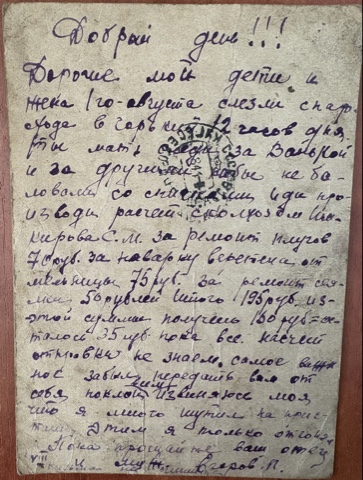 Добрай день!!!
Дорогие мои дети и
жена 1го-августа слезли спаро
хода в горьким 12 часов дня,
ты мать гляди за Вандрой
и за другими кабы не ба-
ловали со спичками иди про-
изводи расчет сколхозом Ша-
кирова С.М. за ремонт плугов
70 руб. за наварку веретена от
мельницы 75 руб. за ремонт сея-
лки 50 рублей итого 195 руб. из-
этой суммы получены 160 руб = ос-
талось 35 руб. пока все. насчет
отправки не знаем. самое важ
ное забыл передать вам от
себя поклон извиняюсь моя
что я много шутил на прис-
тани Этим я только отгонял
Пока прощайте ваш отец
и муж Егоров П.